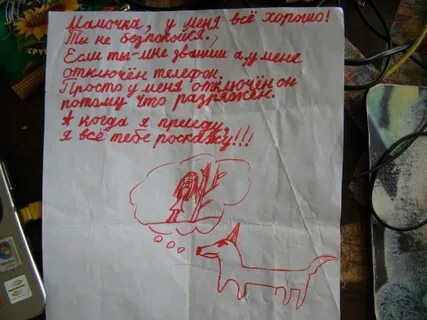 Мамочка, у меня всё хорошо!
Ти не безпокойся.
Если ты мне звониш а у мене
отключён телефон.
Просто у меня отключён он
потому что разряжен.
А когда я приеду,
я всё тебе роскажу!!!